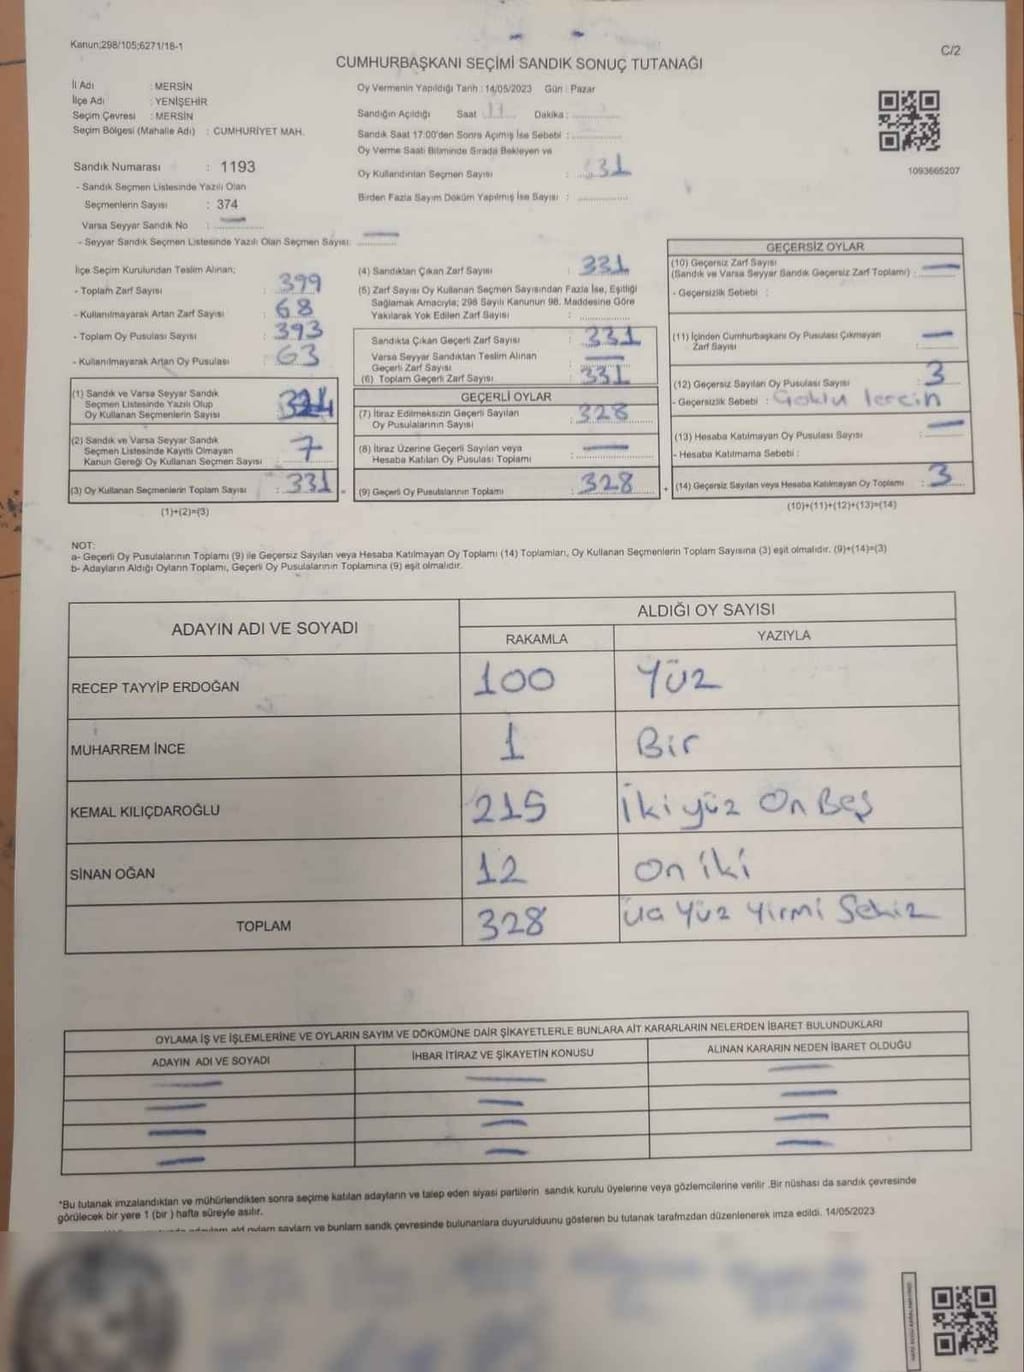 Kanun;298/105;6271/18-1
C/2
CUMHURBAŞKANI SEÇİMİ SANDIK SONUÇ TUTANAĞI
İl Adı : MERSİN
İlçe Adı : YENİŞEHİR
Seçim Çevresi : MERSİN
Seçim Bölgesi (Mahalle Adı) : CUMHURİYET MAH.
Sandık Numarası : 1193
- Sandık Seçmen Listesinde Yazılı Olan
Seçmenlerin Sayısı : 374
Varsa Seyyar Sandık No :
- Seyyar Sandık Seçmen Listesinde Yazılı Olan Seçmen Sayısı:
Oy Vermenin Yapıldığı Tarih : 14/05/2023 Gün : Pazar
Sandığın Açıldığı Saat Dakika :
Sandık Saat 17:00'den Sonra Açılmış İse Sebebi :
Oy Verme Saati Bitiminde Sırada Bekleyen ve
Oy Kullandırılan Seçmen Sayısı : 331
Birden Fazla Sayım Döküm Yapılmış İse Sayısı :
1093665207
İlçe Seçim Kurulundan Teslim Alınan;
- Toplam Zarf Sayısı : 399
- Kullanılmayarak Artan Zarf Sayısı : 68
- Toplam Oy Pusulası Sayısı : 393
- Kullanılmayarak Artan Oy Pusulası : 63
(1) Sandık ve Varsa Seyyar Sandık
Seçmen Listesinde Yazılı Olup
Oy Kullanan Seçmenlerin Sayısı : 324
(2) Sandık ve Varsa Seyyar Sandık
Seçmen Listesinde Kayıtlı Olmayan
Kanun Gereği Oy Kullanan Seçmen Sayısı : 7
(3) Oy Kullanan Seçmenlerin Toplam Sayısı : 331
(1)+(2)=(3)
(4) Sandıktan Çıkan Zarf Sayısı : 331
(5) Zarf Sayısı Oy Kullanan Seçmen Sayısından Fazla İse, Eşitliği
Sağlamak Amacıyla; 298 Sayılı Kanunun 98. Maddesine Göre
Yakılarak Yok Edilen Zarf Sayısı :
Sandıkta Çıkan Geçerli Zarf Sayısı : 331
Varsa Seyyar Sandıktan Teslim Alınan
Geçerli Zarf Sayısı :
(6) Toplam Geçerli Zarf Sayısı : 331
GEÇERLİ OYLAR
(7) İtiraz Edilmeksizin Geçerli Sayılan
Oy Pusulalarının Sayısı : 328
(8) İtiraz Üzerine Geçerli Sayılan veya
Hesaba Katılan Oy Pusulası Toplamı :
= (9) Geçerli Oy Pusulalarının Toplamı : 328
GEÇERSİZ OYLAR
(10) Geçersiz Zarf Sayısı
(Sandık ve Varsa Seyyar Sandık Geçersiz Zarf Toplamı) :
- Geçersizlik Sebebi :
(11) İçinden Cumhurbaşkanı Oy Pusulası Çıkmayan
Zarf Sayısı :
(12) Geçersiz Sayılan Oy Pusulası Sayısı : 3
- Geçersizlik Sebebi :
(13) Hesaba Katılmayan Oy Pusulası Sayısı :
- Hesaba Katılmama Sebebi :
+ (14) Geçersiz Sayılan veya Hesaba Katılmayan Oy Toplamı : 3
(10)+(11)+(12)+(13)=(14)
NOT:
a- Geçerli Oy Pusulalarının Toplamı (9) ile Geçersiz Sayılan veya Hesaba Katılmayan Oy Toplamı (14) Toplamları, Oy Kullanan Seçmenlerin Toplam Sayısına (3) eşit olmalıdır. (9)+(14)=(3)
b- Adayların Aldığı Oyların Toplamı, Geçerli Oy Pusulalarının Toplamına (9) eşit olmalıdır.
ADAYIN ADI VE SOYADI
ALDIĞI OY SAYISI
RAKAMLA YAZIYLA
RECEP TAYYİP ERDOĞAN 100 Yüz
MUHARREM İNCE 1 Bir
KEMAL KILIÇDAROĞLU 215 İki yüz On Beş
SİNAN OĞAN 12 On iki
TOPLAM 328 Üç Yüz Yirmi Sekiz
OYLAMA İŞ VE İŞLEMLERİNE VE OYLARIN SAYIM VE DÖKÜMÜNE DAİR ŞİKAYETLERLE BUNLARA AİT KARARLARIN NELERDEN İBARET BULUNDUKLARI
ADAYIN ADI VE SOYADI İHBAR İTİRAZ VE ŞİKAYETİN KONUSU ALINAN KARARIN NEDEN İBARET OLDUĞU
*Bu tutanak imzalandıktan ve mühürlendikten sonra seçime katılan adayların ve talep eden siyasi partilerin sandık kurulu üyelerine veya gözlemcilerine verilir .Bir nüshası da sandık çevresinde
görülecek bir yere 1 (bir ) hafta süreyle asılır.
ve bunların sandık çevresinde bulunanlara duyurulduunu gösteren bu tutanak tarafmzdan düzenlenerek imza edildi. 14/05/2023